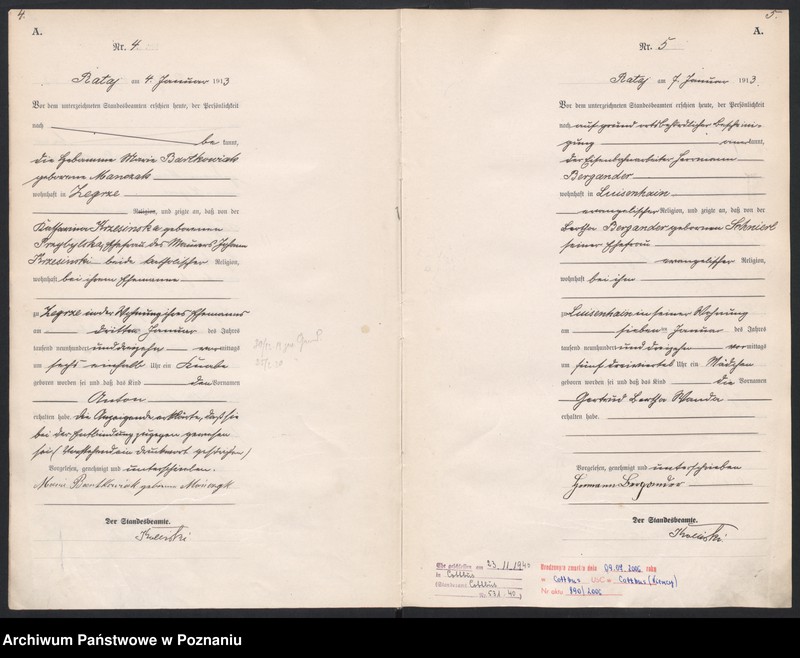 4.
A.
Nr. 4
Rataj am 4. Januar 1913
Vor dem unterzeichneten Standesbeamten erschien heute, der Persönlichkeit
nach
be kannt,
die Hebamme Marie Bartkowiak
geborene Manczak
wohnhaft in Zegrze
Religion, und zeigte an, daß von der
Katharina Krzesinska geborenen
Przybylska, Ehefrau des Maurers Johann
Krzesinski beide katholischer Religion,
wohnhaft bei ihrem Ehemanne
zu Zegrze in der Wohnung ihres Ehemannes
am dritten Januar des Jahres
tausend neunhundert und dreizehn vormittags
um sechs einhalb Uhr ein Knabe
geboren worden sei und daß das Kind den Vornamen
Anton
erhalten habe. Die Anzeigende erklärte, daß sie
bei der Entbindung zugegen gewesen
sei. (Vorstehend ein Druckwort gestrichen)
Vorgelesen, genehmigt und unterschrieben.
Marie Bartkowiak geborene
Der Standesbeamte.
5.
A.
Nr. 5
Rataj am 7. Januar 1913.
Vor dem unterzeichneten Standesbeamten erschien heute, der Persönlichkeit
nach auf Grund ortsbehördlicher Bescheini-
gung kannt,
der Eisenbahnarbeiter Herrmann
Bergander
wohnhaft in Luisenhain
evangelischer Religion, und zeigte an, daß von der
Bertha Bergander geborenen
seiner Ehefrau
evangelischer Religion,
wohnhaft bei ihm
zu Luisenhain in seiner Wohnung
am sieben Januar des Jahres
tausend neunhundert und dreizehn vormittags
um fünf dreiviertel Uhr ein Mädchen
geboren worden sei und daß das Kind die Vornamen
Gertrud Bertha Wanda
erhalten habe.
Vorgelesen, genehmigt und unterschrieben
Hermann Bergander
Der Standesbeamte.
Ehe geschlossen am 23.11.1940
in Cottbus
Standesamt Cottbus
Nr. 531.40
zmarł/a dnia 09.07.2006 roku
w Cottbus USC w Cottbus (Niemcy)
Nr aktu 890/2006
Archiwum Państwowe w Poznaniu